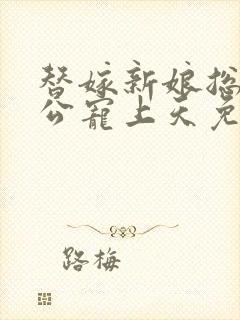 替嫁新娘总
公宠上天免
路梅